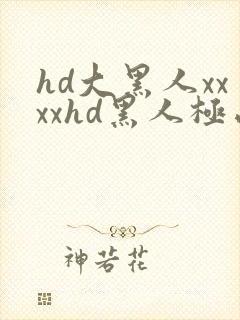 hd大黑人xx
xxhd黑人極
神若花